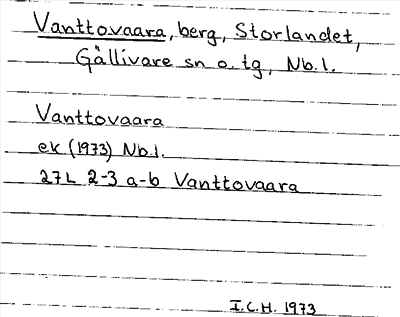 Vanttovaara, berg, Storlandet,
Gällivare sn o. tg, Nb.l.
Vanttovaara
ek (1973) Nb.l.
27L 2-3 a-b Vanttovaara
I.C.H. 1973